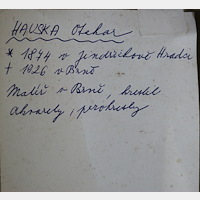 HAUSKA Otakar
* 1874 v Jindřichově Hradci
† 1926 v Brně
Malíř v Brně, kreslil
akvarely, perokresby